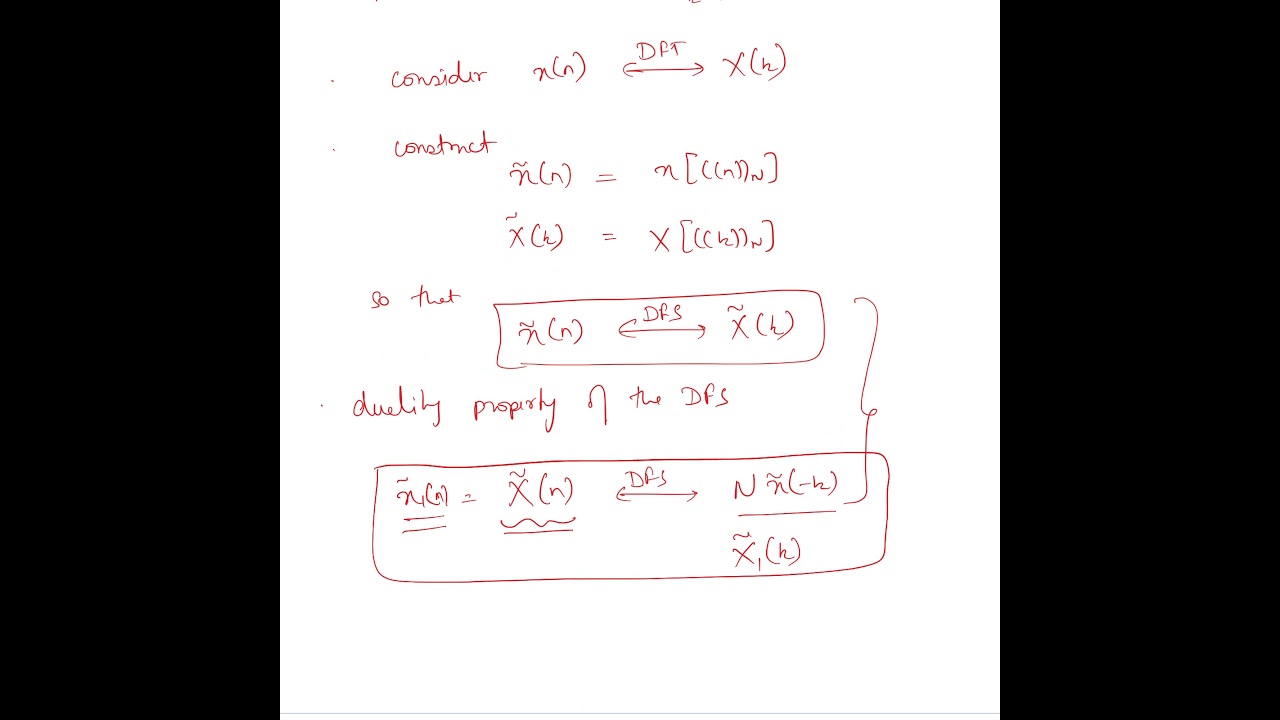 · consider x(n) ⟷ DFT X(k)
· construct
x̃(n) = x[((n))N]
X̃(k) = X[((k))N]
so that
x̃(n) ⟷ DFS X̃(k)
· duality property of the DFS
x̃₁(n) = X̃(n) ⟷ DFS N x̃(-k)
X̃₁(k)